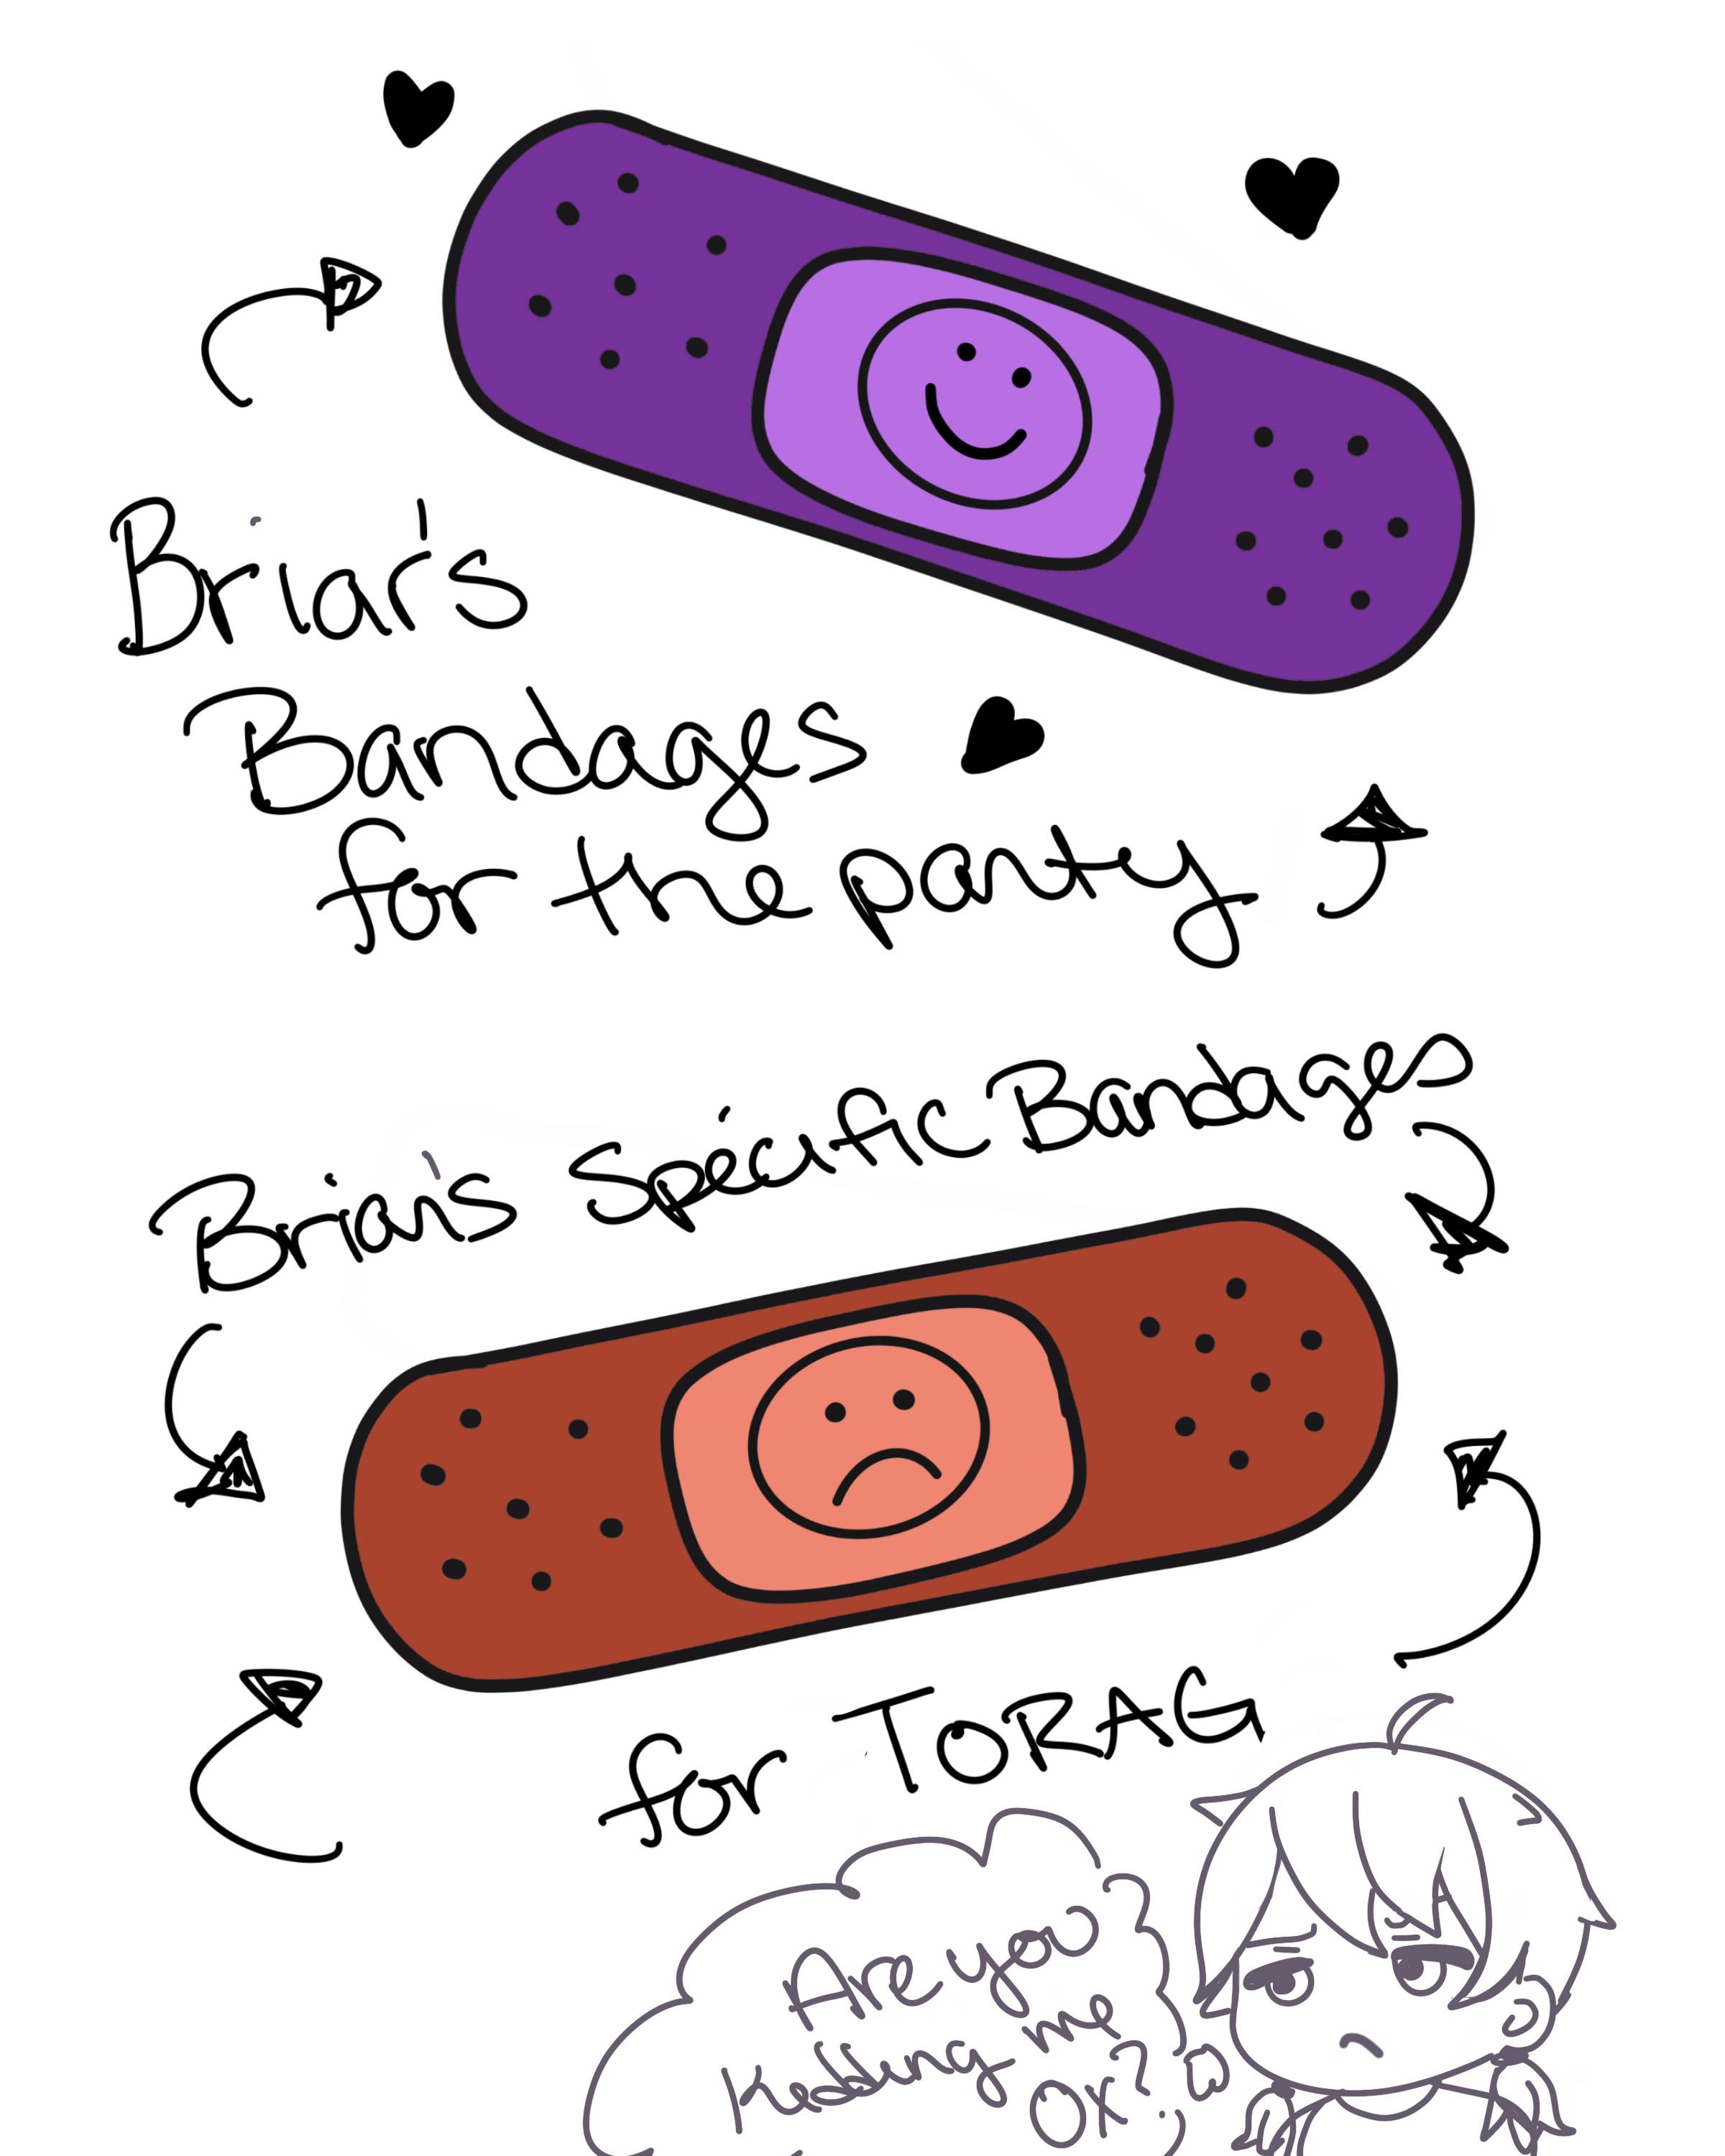 Briar's
Bandages
for the party
Briar's Specific Bandages
for TORAG
Are you
Healing me
OK?